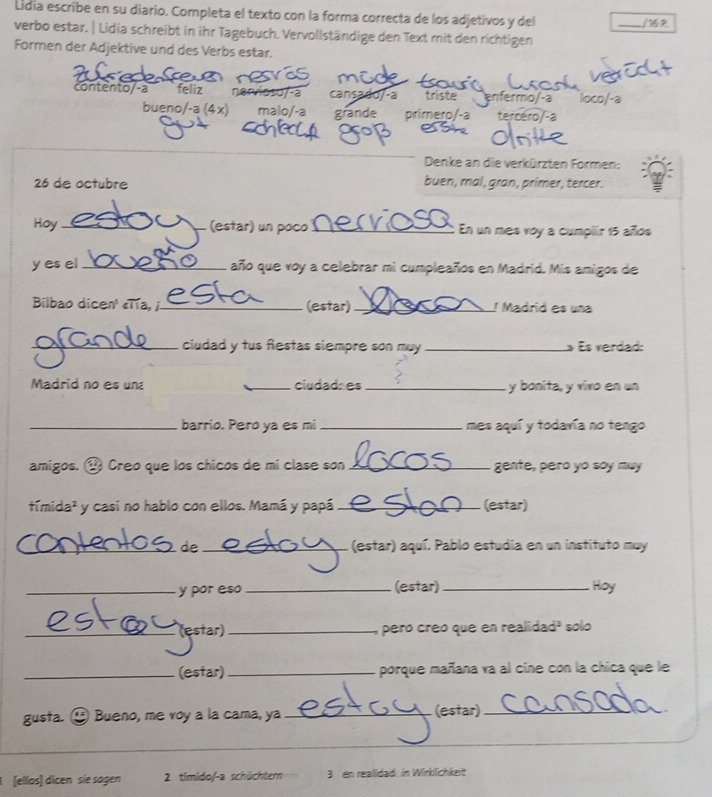 Lidia escribe en su diario. Completa el texto con la forma correcta de los adjetivos y del
verbo estar. | Lidia schreibt in ihr Tagebuch. Vervollständige den Text mit den richtigen
Formen der Adjektive und des Verbs estar.
____/16 P.
nesvös müde traurig verückt
contento/-a feliz nervioso/-a cansado/-a triste enfermo/-a loco/-a
bueno/-a (4x) malo/-a grande primero/-a tercero/-a
gut schlecht groß erste dritte
Denke an die verkürzten Formen:
buen, mal, gran, primer, tercer.
26 de octubre
Hoy estoy (estar) un poco nerviosa. En un mes voy a cumplir 15 años
y es el bueno año que voy a celebrar mi cumpleaños en Madrid. Mis amigos de
Bilbao dicen¹ «Tía, ¡ esta (estar) ! Madrid es una
grande ciudad y tus fiestas siempre son muy ____» Es verdad:
Madrid no es una ____ ciudad: es ____ y bonita, y vivo en un
____ barrio. Pero ya es mi ____ mes aquí y todavía no tengo
amigos. Creo que los chicos de mi clase son locos gente, pero yo soy muy
tímida² y casi no hablo con ellos. Mamá y papá estan (estar)
contentos de estoy (estar) aquí. Pablo estudia en un instituto muy
____ y por eso ____ (estar) ____. Hoy
estoy (estar) ____, pero creo que en realidad³ solo
____ (estar) ____ porque mañana va al cine con la chica que le
gusta. Bueno, me voy a la cama, ya estoy (estar) cansada.
1 [ellos] dicen sie sagen 2 tímido/-a schüchtern 3 en realidad in Wirklichkeit